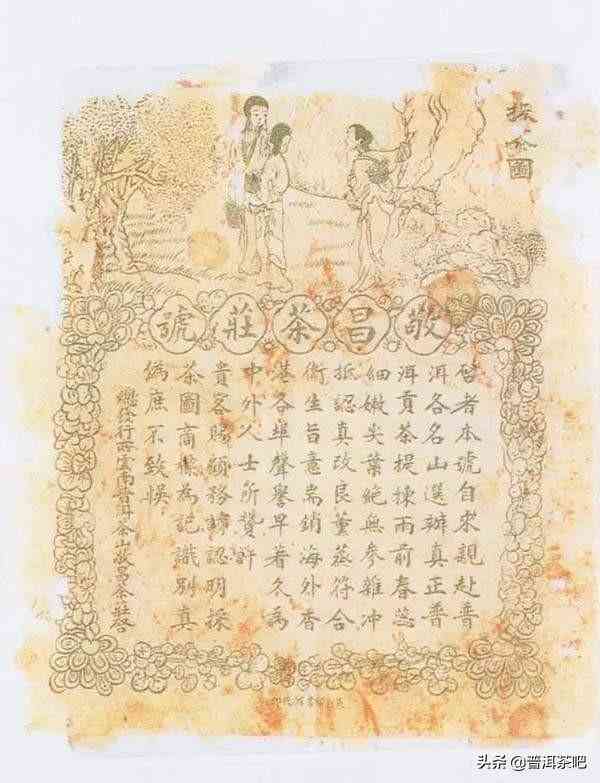 採茶圖
敬昌茶莊號
啓者本號自來親赴普
洱各名山選辦真正普
洱貢茶提揀雨前春蕊
細嫩尖葉絕無參雜冲
抵認真改良薰蒸符合
衛生旨意耑銷海外香
港各埠聲譽早著久為
中外人士所贊許
貴客賜顧務請認明採
茶圖商標為記識別真
偽庶不致悞
總發行所雲南普洱茶山敬昌茶莊啓
头条 @普洱茶吧